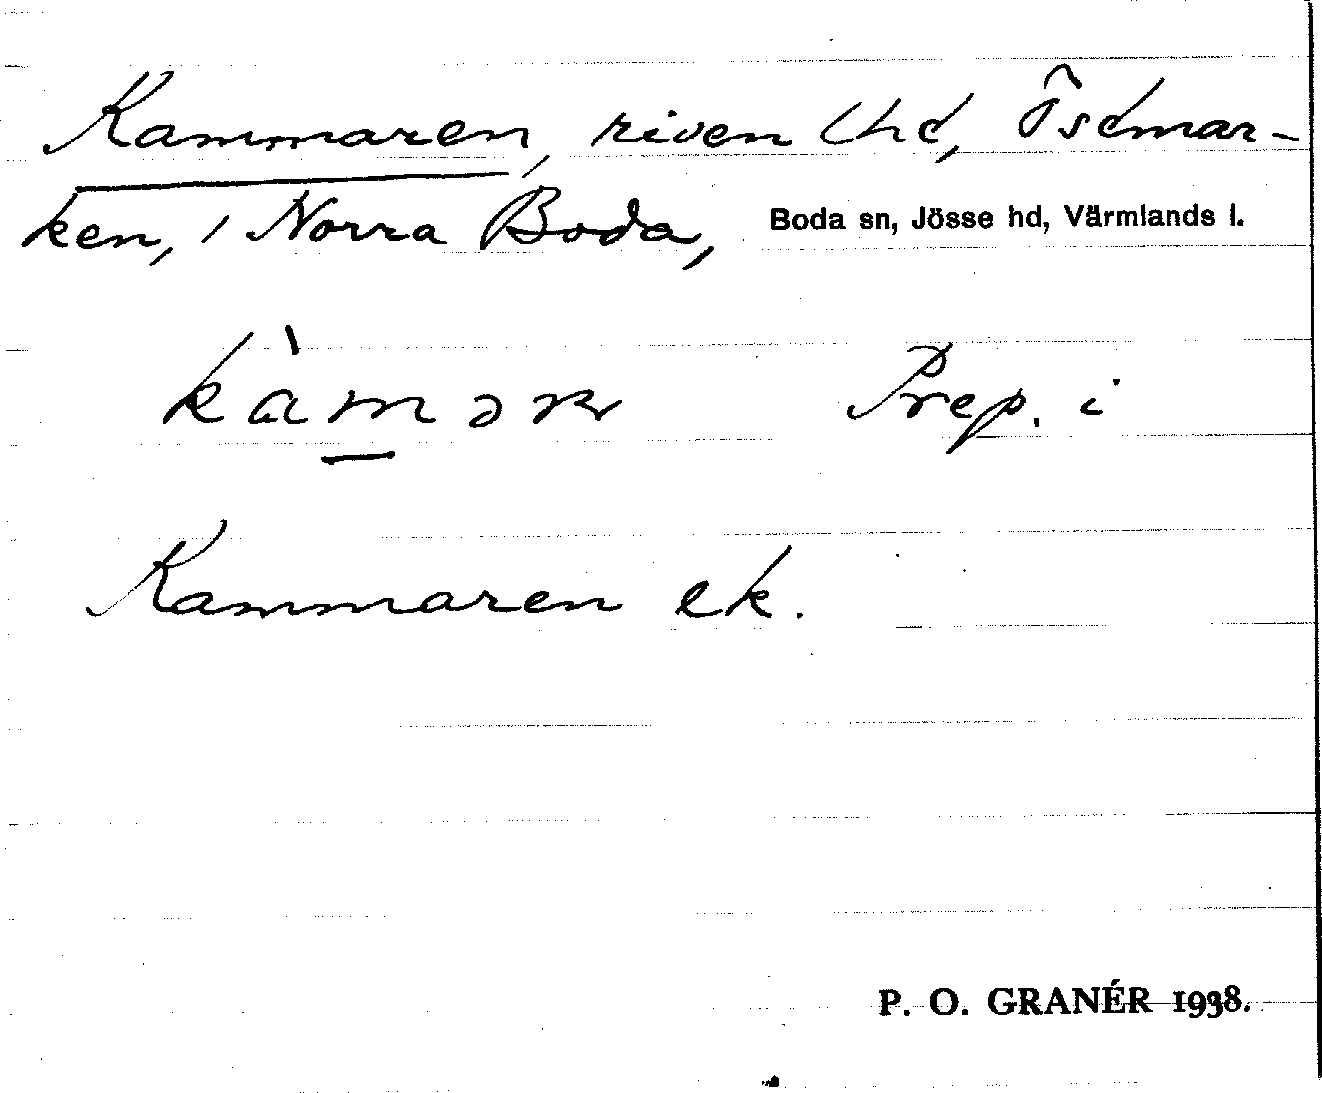 Kammaren, riven lhd, Östmar-
ken, i Norra Boda, Boda sn, Jösse hd, Värmlands l.
kàmər Prep. i
Kammaren ek.
P. O. GRANÉR 1938.